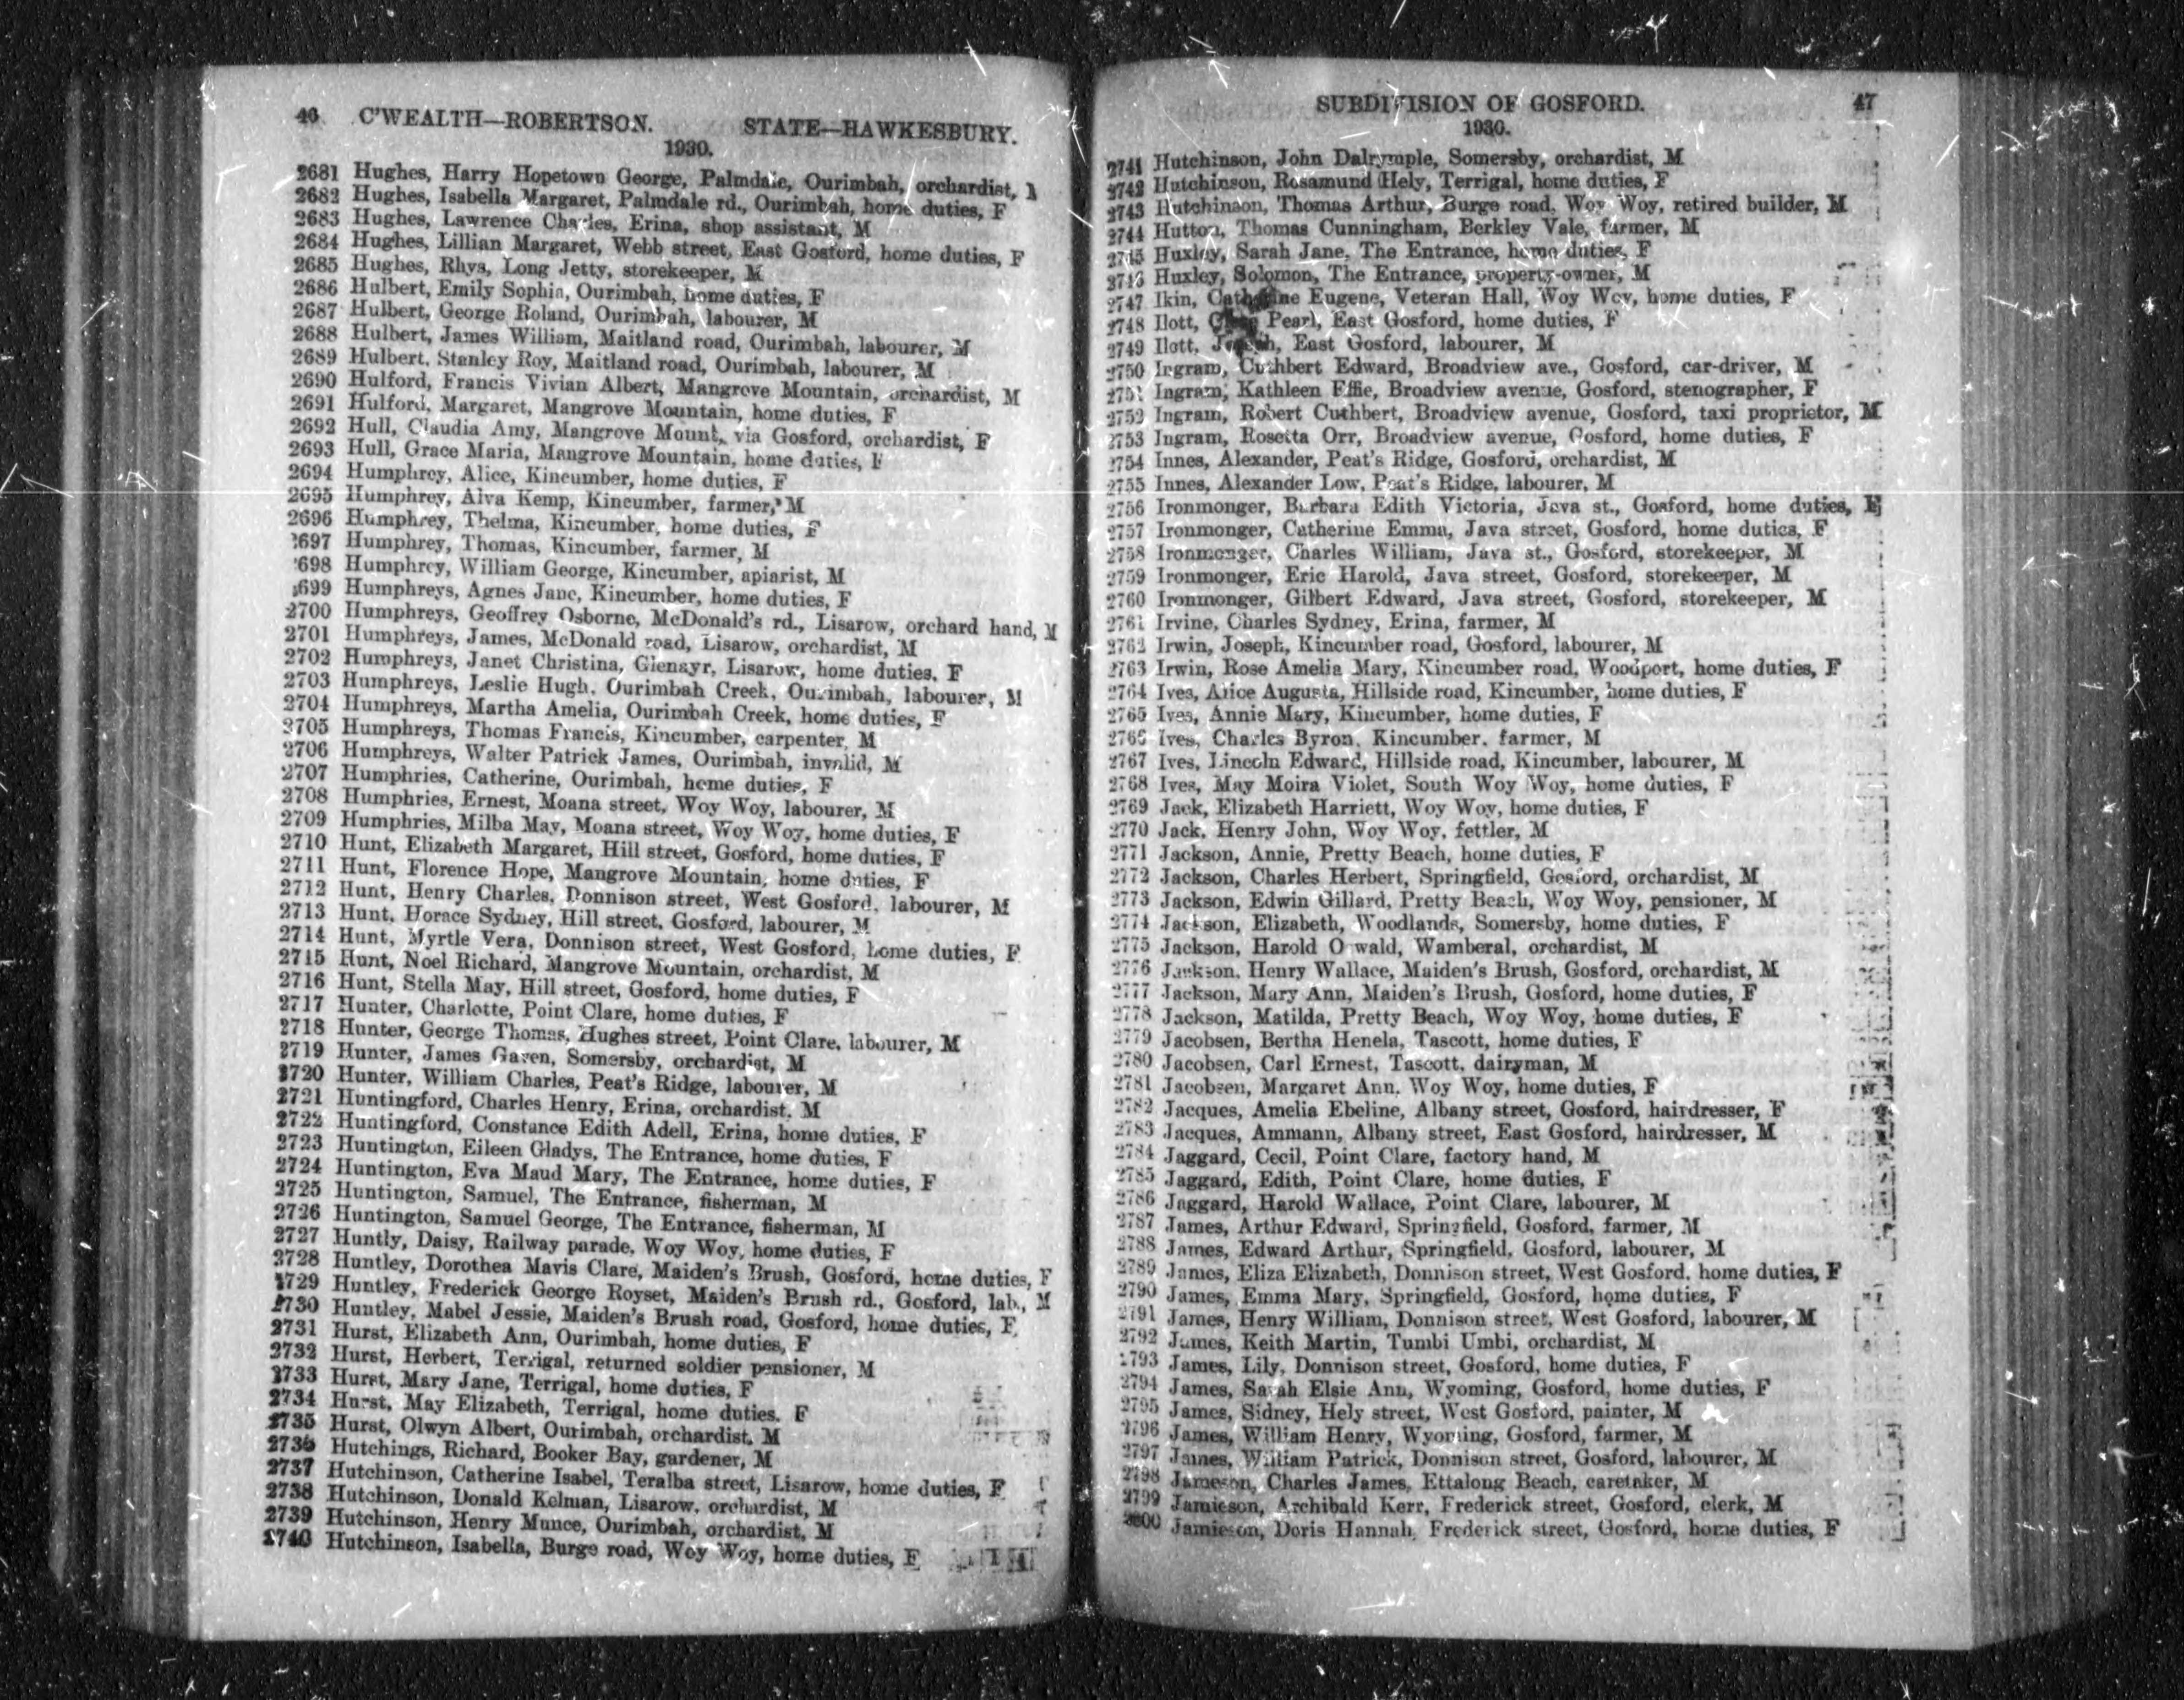 46 C'WEALTH—ROBERTSON. STATE—HAWKESBURY.
1930.
2681 Hughes, Harry Hopetown George, Palmdale, Ourimbah, orchardist,
2682 Hughes, Isabella Margaret, Palmdale rd., Ourimbah, home duties, F
2683 Hughes, Lawrence Charles, Erina, shop assistant, M
2684 Hughes, Lillian Margaret, Webb street, East Gosford, home duties, F
2685 Hughes, Rhys, Long Jetty, storekeeper, M
2686 Hulbert, Emily Sophia, Ourimbah, home duties, F
2687 Hulbert, George Roland, Ourimbah, labourer, M
2688 Hulbert, James William, Maitland road, Ourimbah, labourer, M
2689 Hulbert, Stanley Roy, Maitland road, Ourimbah, labourer, M
2690 Hulford, Francis Vivian Albert, Mangrove Mountain, orchardist, M
2691 Hulford, Margaret, Mangrove Mountain, home duties, F
2692 Hull, Claudia Amy, Mangrove Mount, via Gosford, orchardist, F
2693 Hull, Grace Maria, Mangrove Mountain, home duties, F
2694 Humphrey, Alice, Kincumber, home duties, F
2695 Humphrey, Alva Kemp, Kincumber, farmer, M
2696 Humphrey, Thelma, Kincumber, home duties, F
2697 Humphrey, Thomas, Kincumber, farmer, M
2698 Humphrey, William George, Kincumber, apiarist, M
2699 Humphreys, Agnes Jane, Kincumber, home duties, F
2700 Humphreys, Geoffrey Osborne, McDonald's rd., Lisarow, orchard hand, M
2701 Humphreys, James, McDonald road, Lisarow, orchardist, M
2702 Humphreys, Janet Christina, Glenayr, Lisarow, home duties, F
2703 Humphreys, Leslie Hugh, Ourimbah Creek, Ourimbah, labourer, M
2704 Humphreys, Martha Amelia, Ourimbah Creek, home duties, F
2705 Humphreys, Thomas Francis, Kincumber, carpenter, M
2706 Humphreys, Walter Patrick James, Ourimbah, invalid, M
2707 Humphries, Catherine, Ourimbah, home duties, F
2708 Humphries, Ernest, Moana street, Woy Woy, labourer, M
2709 Humphries, Milba May, Moana street, Woy Woy, home duties, F
2710 Hunt, Elizabeth Margaret, Hill street, Gosford, home duties, F
2711 Hunt, Florence Hope, Mangrove Mountain, home duties, F
2712 Hunt, Henry Charles, Donnison street, West Gosford, labourer, M
2713 Hunt, Horace Sydney, Hill street, Gosford, labourer, M
2714 Hunt, Myrtle Vera, Donnison street, West Gosford, home duties, F
2715 Hunt, Noel Richard, Mangrove Mountain, orchardist, M
2716 Hunt, Stella May, Hill street, Gosford, home duties, F
2717 Hunter, Charlotte, Point Clare, home duties, F
2718 Hunter, George Thomas, Hughes street, Point Clare, labourer, M
2719 Hunter, James Gaven, Somersby, orchardist, M
2720 Hunter, William Charles, Peat's Ridge, labourer, M
2721 Huntingford, Charles Henry, Erina, orchardist, M
2722 Huntingford, Constance Edith Adell, Erina, home duties, F
2723 Huntington, Eileen Gladys, The Entrance, home duties, F
2724 Huntington, Eva Maud Mary, The Entrance, home duties, F
2725 Huntington, Samuel, The Entrance, fisherman, M
2726 Huntington, Samuel George, The Entrance, fisherman, M
2727 Huntly, Daisy, Railway parade, Woy Woy, home duties, F
2728 Huntley, Dorothea Mavis Clare, Maiden's Brush, Gosford, home duties, F
2729 Huntley, Frederick George Royset, Maiden's Brush rd., Gosford, lab., M
2730 Huntley, Mabel Jessie, Maiden's Brush road, Gosford, home duties, F
2731 Hurst, Elizabeth Ann, Ourimbah, home duties, F
2732 Hurst, Herbert, Terrigal, returned soldier pensioner, M
2733 Hurst, Mary Jane, Terrigal, home duties, F
2734 Hurst, May Elizabeth, Terrigal, home duties, F
2735 Hurst, Olwyn Albert, Ourimbah, orchardist, M
2736 Hutchings, Richard, Booker Bay, gardener, M
2737 Hutchinson, Catherine Isabel, Teralba street, Lisarow, home duties, F
2738 Hutchinson, Donald Kelman, Lisarow, orchardist, M
2739 Hutchinson, Henry Munce, Ourimbah, orchardist, M
2740 Hutchinson, Isabella, Burge road, Woy Woy, home duties, F
SUBDIVISION OF GOSFORD. 47
1930.
2741 Hutchinson, John Dalrymple, Somersby, orchardist, M
2742 Hutchinson, Rosamund Hely, Terrigal, home duties, F
2743 Hutchinson, Thomas Arthur, Burge road, Woy Woy, retired builder, M
2744 Hutton, Thomas Cunningham, Berkley Vale, farmer, M
2745 Huxley, Sarah Jane, The Entrance, home duties, F
2746 Huxley, Solomon, The Entrance, property-owner, M
2747 Ikin, Eugene, Veteran Hall, Woy Woy, home duties, F
2748 Ilott, Pearl, East Gosford, home duties, F
2749 Ilott, Joseph, East Gosford, labourer, M
2750 Ingram, Cuthbert Edward, Broadview ave., Gosford, car-driver, M
2751 Ingram, Kathleen Effie, Broadview avenue, Gosford, stenographer, F
2752 Ingram, Robert Cuthbert, Broadview avenue, Gosford, taxi proprietor, M
2753 Ingram, Rosetta Orr, Broadview avenue, Gosford, home duties, F
2754 Innes, Alexander, Peat's Ridge, Gosford, orchardist, M
2755 Innes, Alexander Low, Peat's Ridge, labourer, M
2756 Ironmonger, Barbara Edith Victoria, Java st., Gosford, home duties, F
2757 Ironmonger, Catherine Emma, Java street, Gosford, home duties, F
2758 Ironmonger, Charles William, Java st., Gosford, storekeeper, M
2759 Ironmonger, Eric Harold, Java street, Gosford, storekeeper, M
2760 Ironmonger, Gilbert Edward, Java street, Gosford, storekeeper, M
2761 Irvine, Charles Sydney, Erina, farmer, M
2762 Irwin, Joseph, Kincumber road, Gosford, labourer, M
2763 Irwin, Rose Amelia Mary, Kincumber road, Woodport, home duties, F
2764 Ives, Alice Augusta, Hillside road, Kincumber, home duties, F
2765 Ives, Annie Mary, Kincumber, home duties, F
2766 Ives, Charles Byron, Kincumber, farmer, M
2767 Ives, Lincoln Edward, Hillside road, Kincumber, labourer, M
2768 Ives, May Moira Violet, South Woy Woy, home duties, F
2769 Jack, Elizabeth Harriett, Woy Woy, home duties, F
2770 Jack, Henry John, Woy Woy, fettler, M
2771 Jackson, Annie, Pretty Beach, home duties, F
2772 Jackson, Charles Herbert, Springfield, Gosford, orchardist, M
2773 Jackson, Edwin Gillard, Pretty Beach, Woy Woy, pensioner, M
2774 Jackson, Elizabeth, Woodlands, Somersby, home duties, F
2775 Jackson, Harold O wald, Wamberal, orchardist, M
2776 Jackson, Henry Wallace, Maiden's Brush, Gosford, orchardist, M
2777 Jackson, Mary Ann, Maiden's Brush, Gosford, home duties, F
2778 Jackson, Matilda, Pretty Beach, Woy Woy, home duties, F
2779 Jacobsen, Bertha Henela, Tascott, home duties, F
2780 Jacobsen, Carl Ernest, Tascott, dairyman, M
2781 Jacobsen, Margaret Ann, Woy Woy, home duties, F
2782 Jacques, Amelia Ebeline, Albany street, Gosford, hairdresser, F
2783 Jacques, Ammann, Albany street, East Gosford, hairdresser, M
2784 Jaggard, Cecil, Point Clare, factory hand, M
2785 Jaggard, Edith, Point Clare, home duties, F
2786 Jaggard, Harold Wallace, Point Clare, labourer, M
2787 James, Arthur Edward, Springfield, Gosford, farmer, M
2788 James, Edward Arthur, Springfield, Gosford, labourer, M
2789 James, Eliza Elizabeth, Donnison street, West Gosford, home duties, F
2790 James, Emma Mary, Springfield, Gosford, home duties, F
2791 James, Henry William, Donnison street, West Gosford, labourer, M
2792 James, Keith Martin, Tumbi Umbi, orchardist, M
2793 James, Lily, Donnison street, Gosford, home duties, F
2794 James, Sarah Elsie Ann, Wyoming, Gosford, home duties, F
2795 James, Sidney, Hely street, West Gosford, painter, M
2796 James, William Henry, Wyoming, Gosford, farmer, M
2797 James, William Patrick, Donnison street, Gosford, labourer, M
2798 Jameson, Charles James, Ettalong Beach, caretaker, M
2799 Jamieson, Archibald Kerr, Frederick street, Gosford, clerk, M
2800 Jamieson, Doris Hannah, Frederick street, Gosford, home duties, F